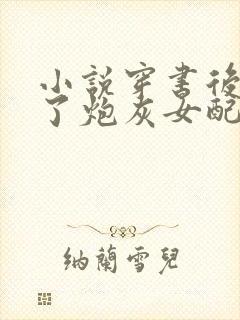 小說穿書後
了炮灰女配
納蘭雪兒